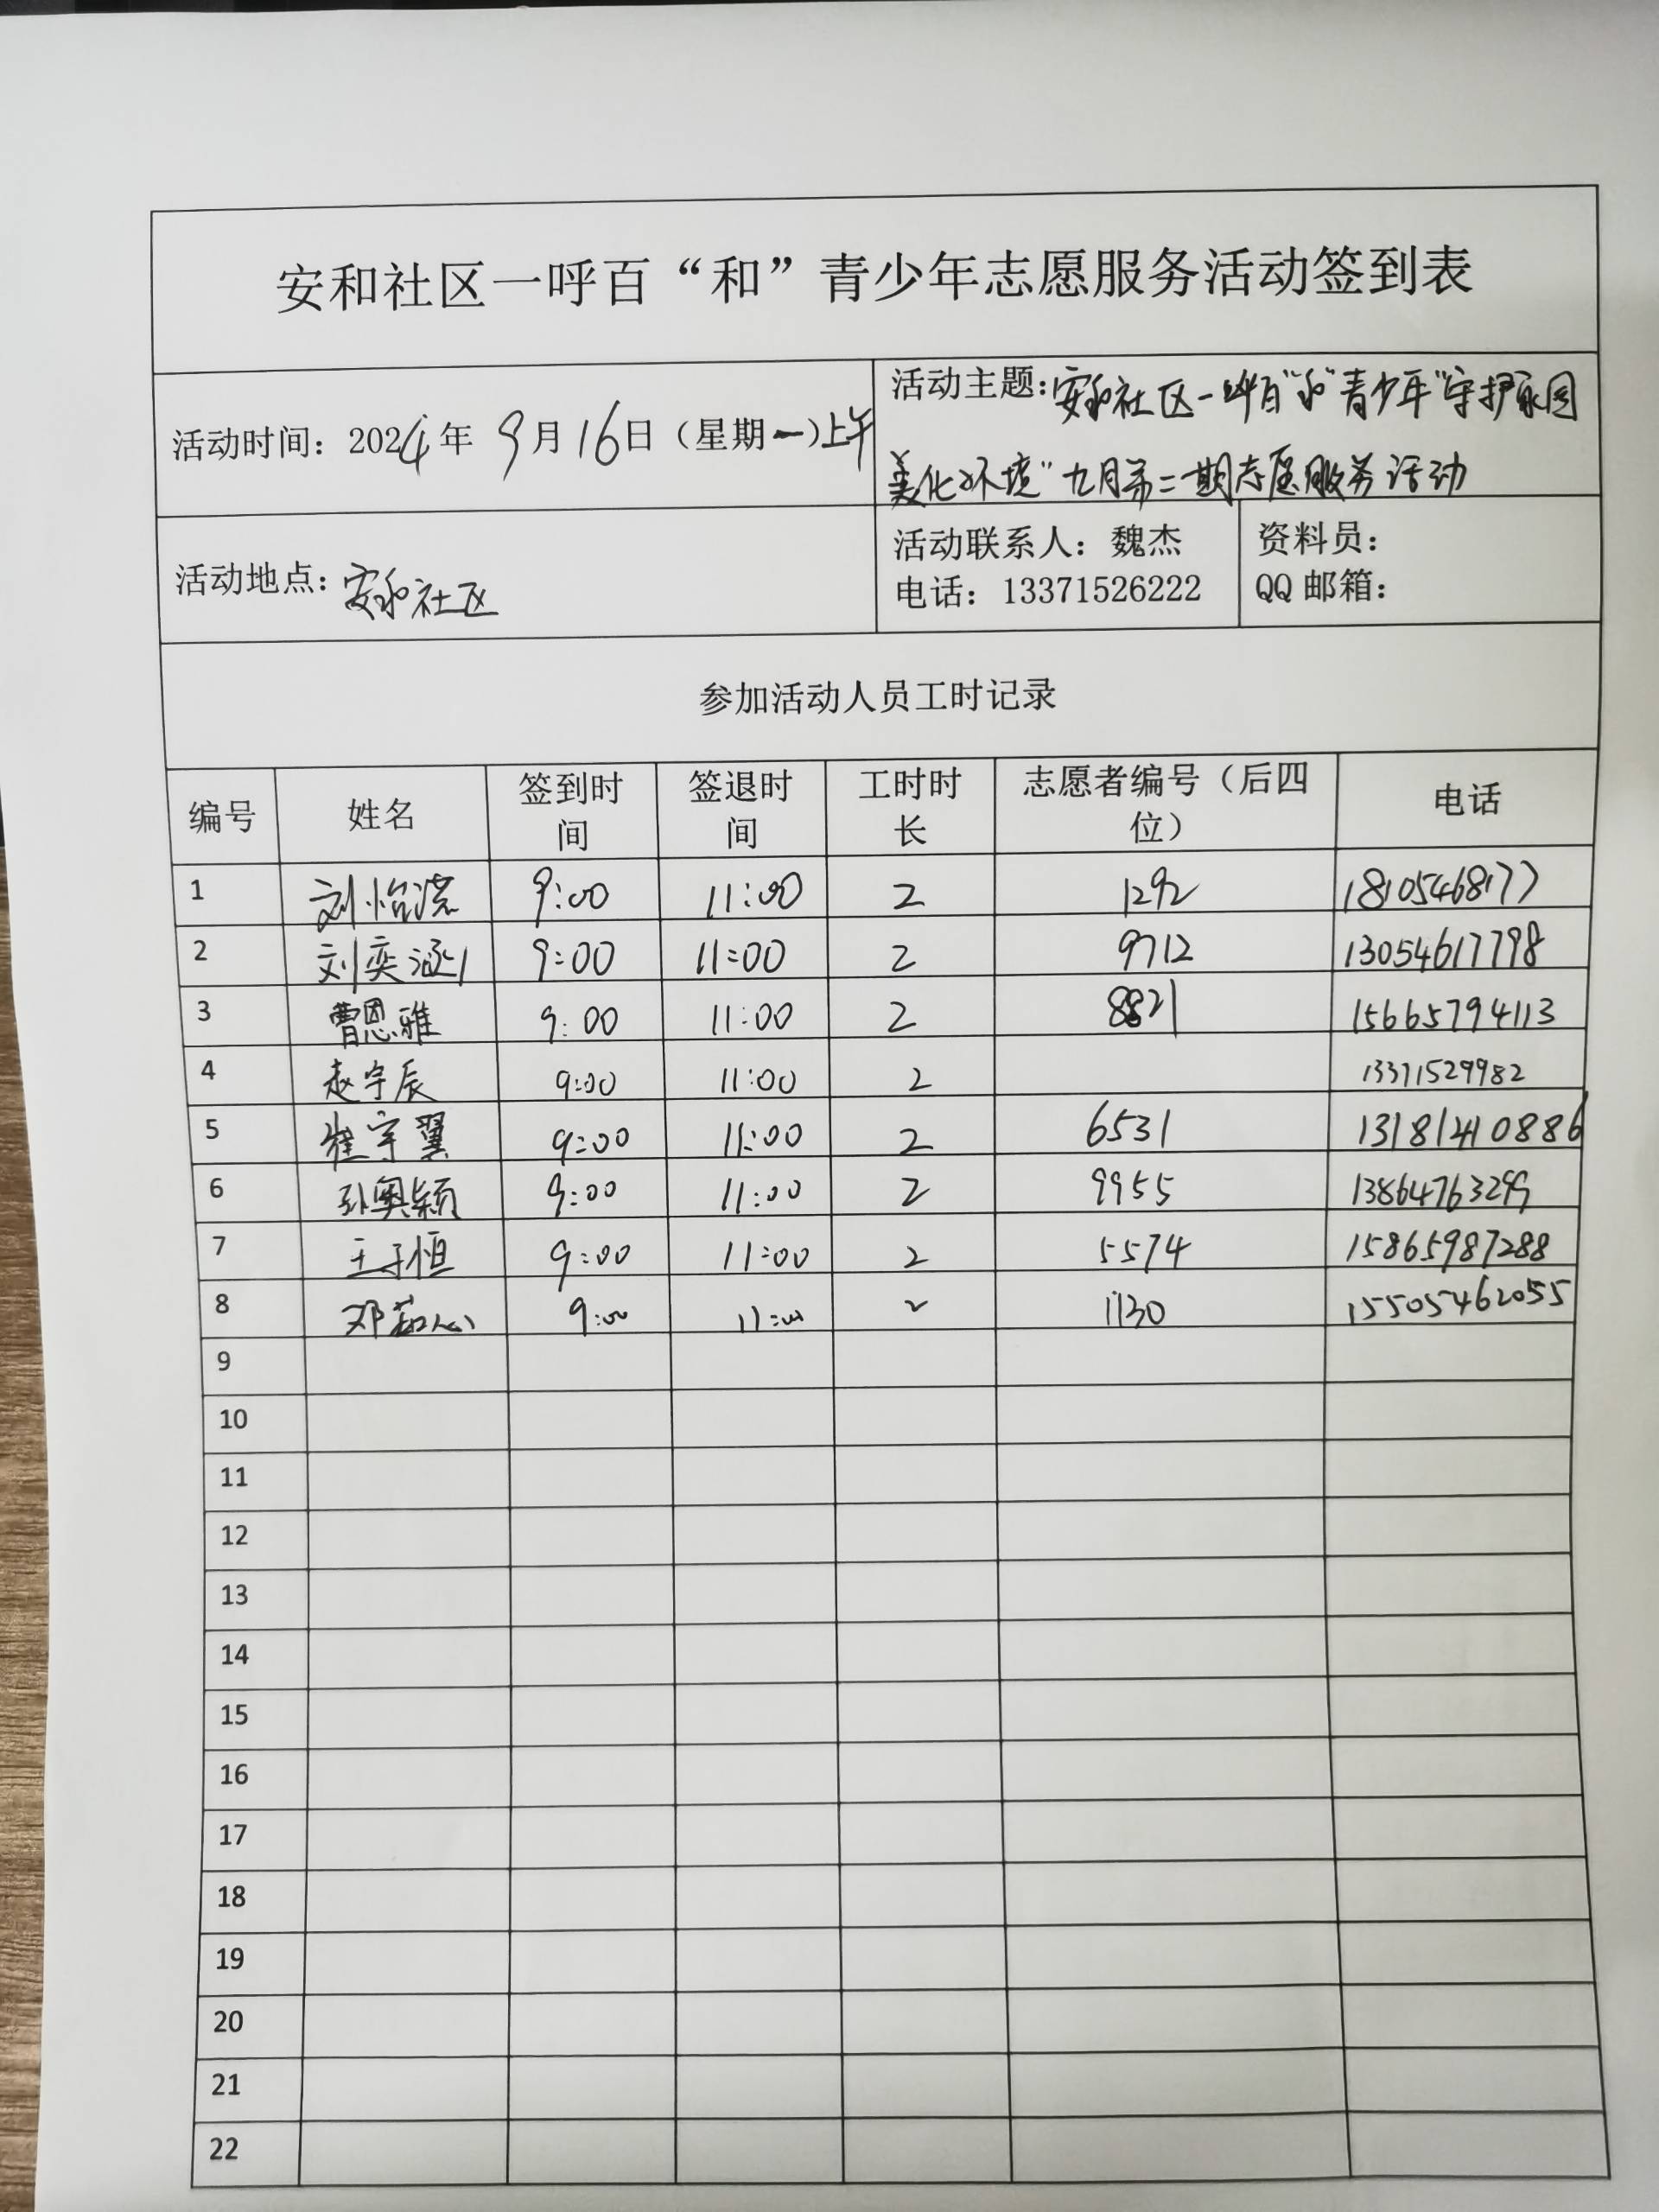 安和社区一呼百“和”青少年志愿服务活动签到表
活动时间：2024年 9月16日（星期一）上午
活动主题：安和社区一呼百“和”青少年“守护家园
美化环境”九月第二期志愿服务活动
活动地点：安和社区
活动联系人：魏杰
电话：13371526222
资料员：
QQ邮箱：
参加活动人员工时记录
编号 姓名 签到时间 签退时间 工时时长 志愿者编号（后四位） 电话
1 刘怡 9:00 11:00 2 1292 18105468177
2 刘奕涵 9:00 11:00 2 9712 13054617798
3 曹恩雅 9:00 11:00 2 8821 15665794113
4 赵宇辰 9:00 11:00 2 13371529982
5 崔宇翼 9:00 11:00 2 6531 13181210886
6 孙奥颖 9:00 11:00 2 9955 13864763299
7 王子恒 9:00 11:00 2 5574 15865987288
8 邓茹心 9:00 11:00 2 1130 15505462055
9
10
11
12
13
14
15
16
17
18
19
20
21
22